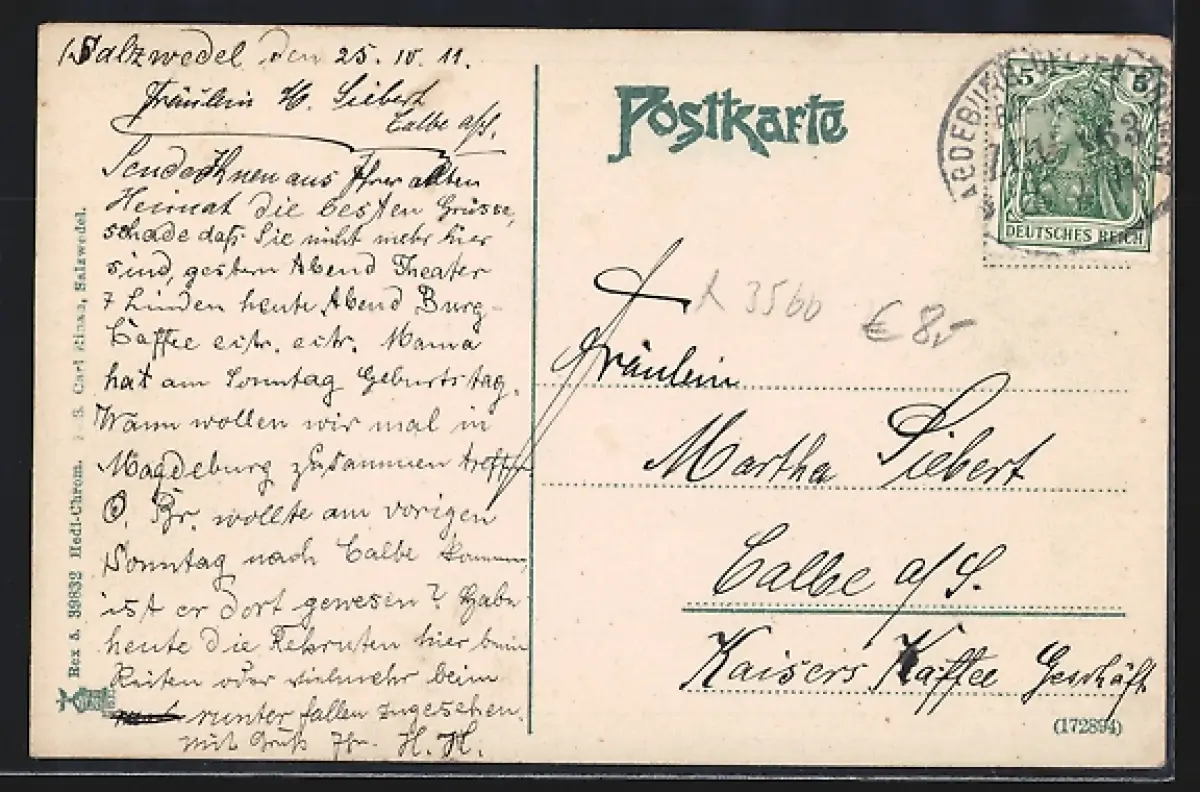 Salzwedel den 25. 10. 11.
Fräulein H. Siebert
Calbe a/S.
Sende Ihnen aus Ihrer alten
Heimat die besten Grüsse,
schade daß Sie nicht mehr hier
sind, gestern Abend Theater
7 Linden heute Abend Burg-
Caffee citr. citr. Mama
hat am Sonntag Geburtstag.
Wann wollen wir mal in
Magdeburg zusammen treffen
O. Br. wollte am vorigen
Sonntag nach Calbe kommen
ist er dort gewesen? Habe
heute die Rekruten hier beim
Reiten oder vielmehr beim
runter fallen zugesehen.
mit Gruß Ihr. H. H.
Rex 5. 39832 Hedi-Chrom. Carl Salzwedel.
Postkarte
5 5
DEUTSCHES REICH
3560
€ 8,-
Fräulein
Martha Siebert
Calbe a/S.
Kaisers Kaffee Geschäft
(172894)